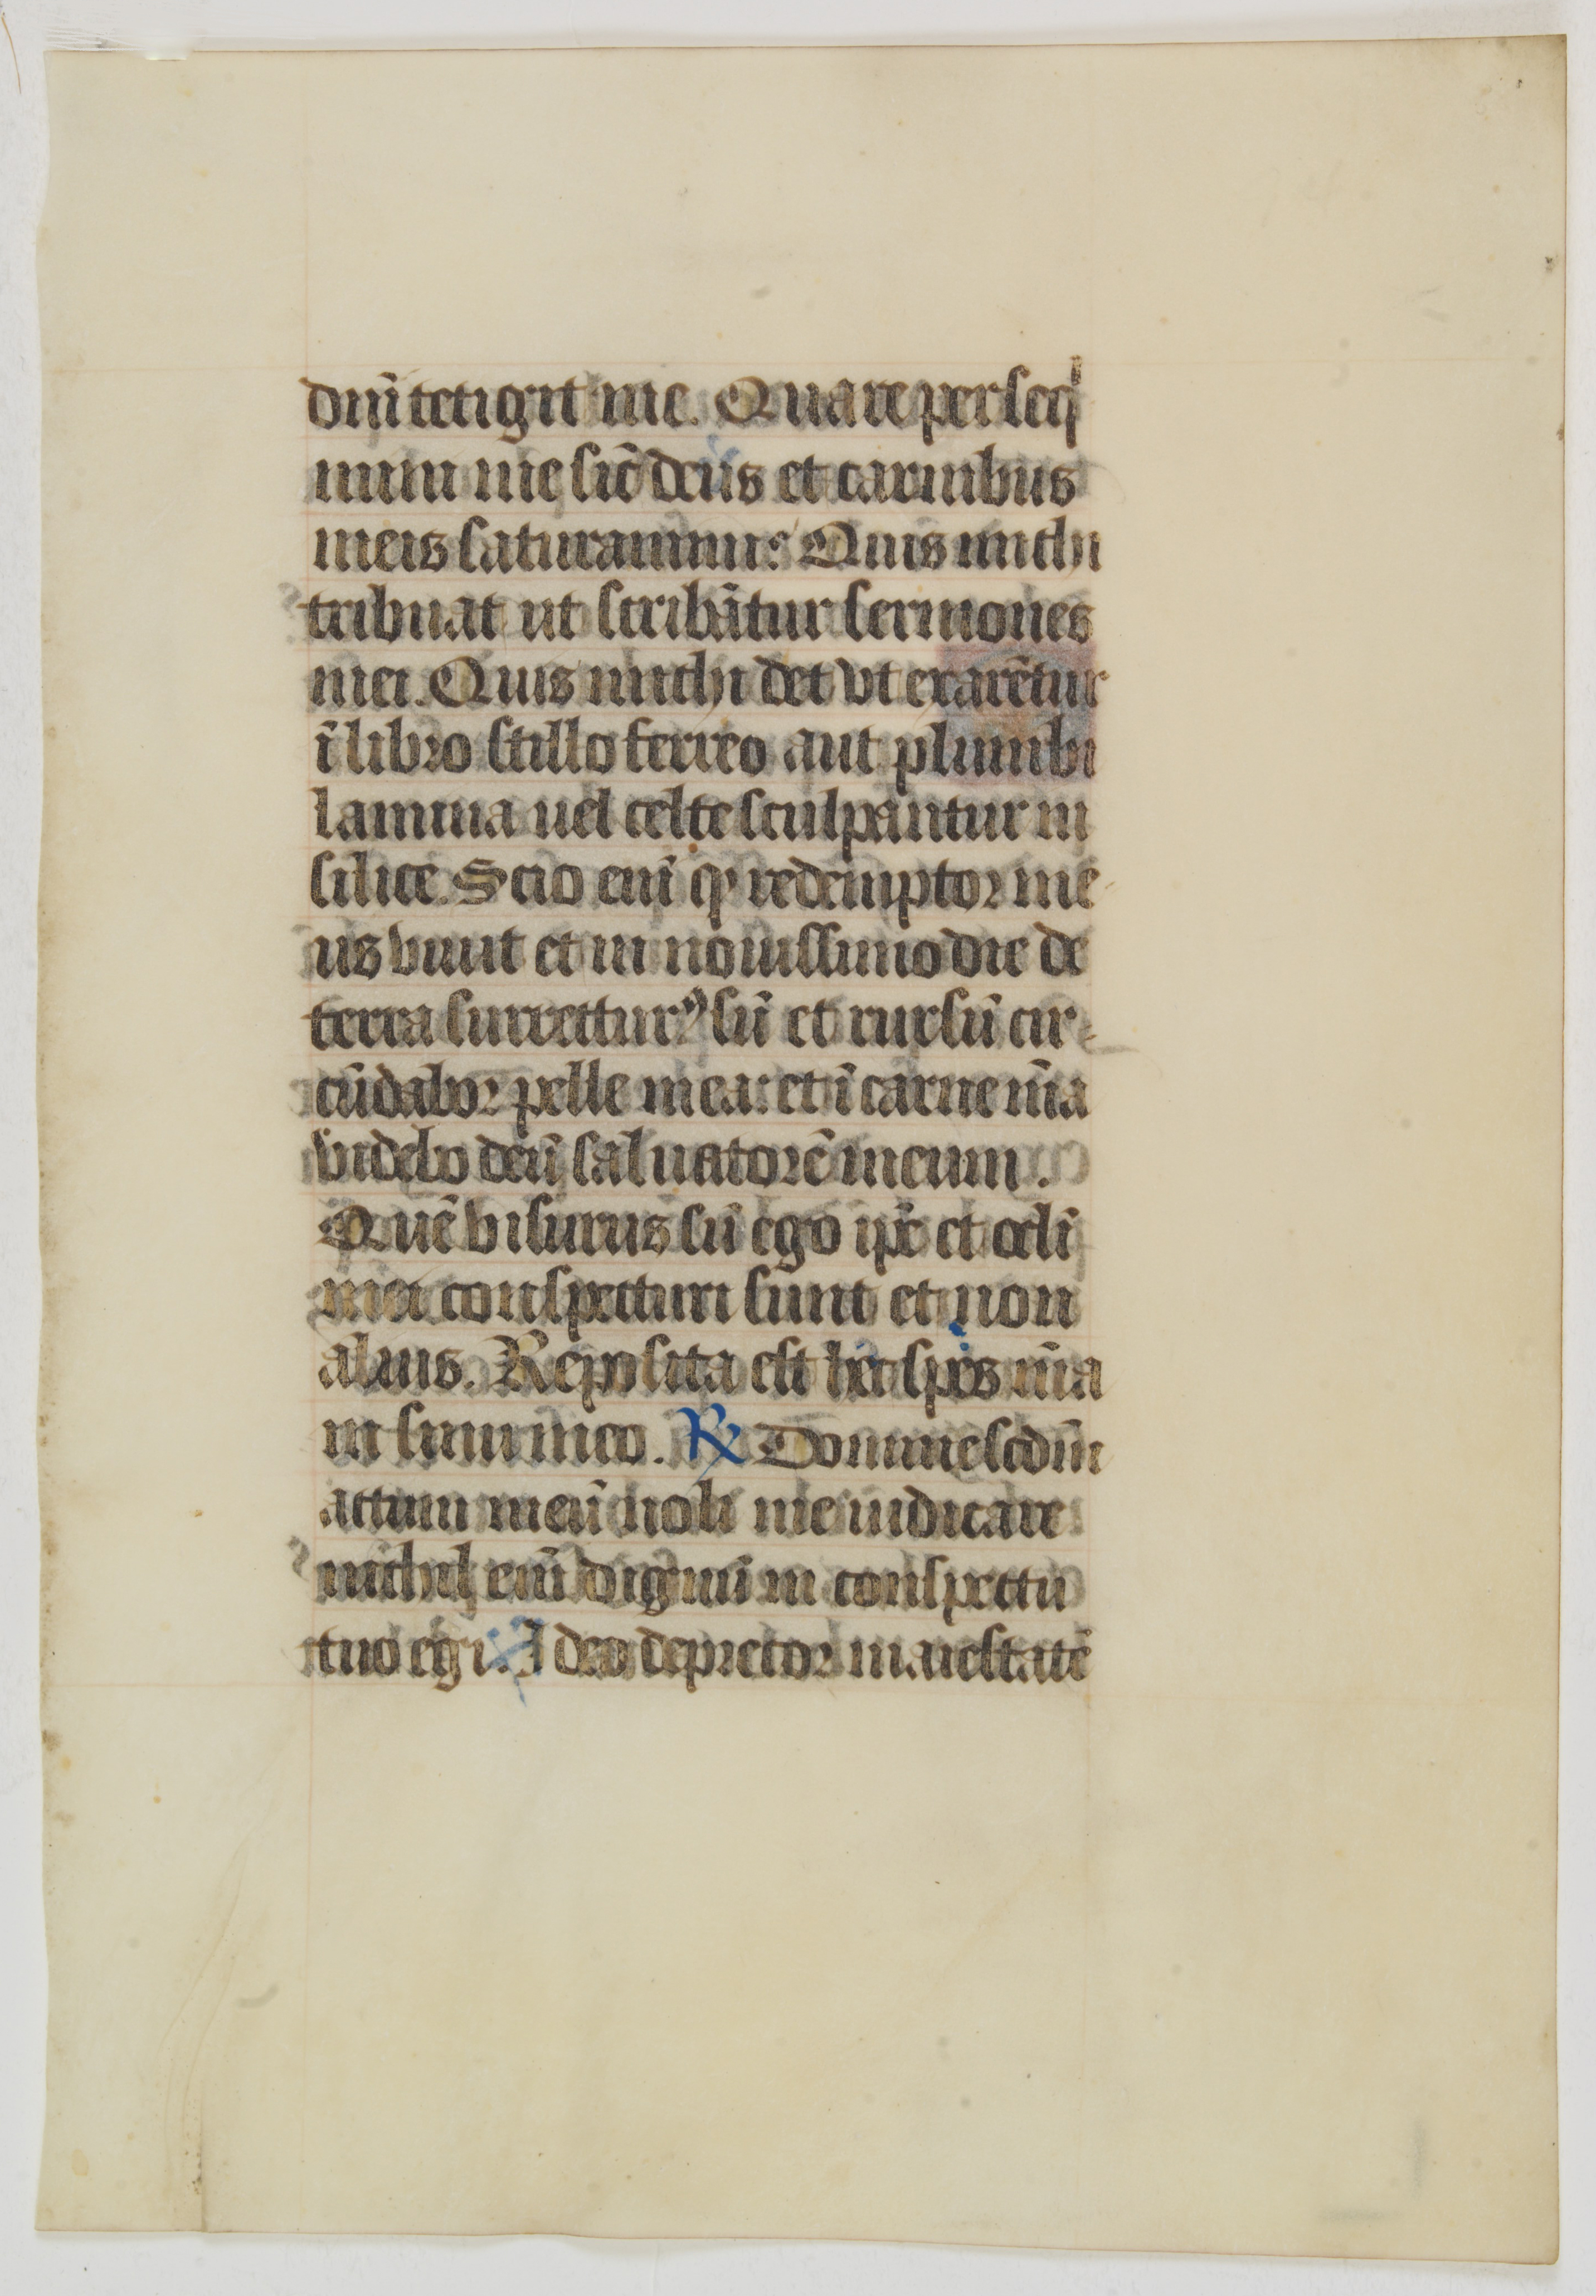 dn̄i tetigit me. Quare perseqͥ
mini me sic̄ deus et carnibus
meis saturamini: Quis michi
tribuat ut scribāt̄ur sermones
mei. Quis michi det vt exarēt̄ur
ī libro stillo ferreo aut plumbi
lamina uel celte sculpantur in
silice. Scio eni̅ ꝙ redemptor me
us viuit et in nouissimo die de
terra surrecturꝰ su̅ et rursu̅ cir-
cu̅dabor pelle mea: et ī carne m̅a
videbo deu̅ saluatore̅ meum.
Que̅ visurus su̅ ego ip̅e et ocli̅
mei conspecturi sunt et non
alius. Reposita est hec spes m̅a
in sinu meo. ℟ Domine scdm̅
actum meu̅ noli me iudicare
nichil eni̅ dignu̅ in conspectu
tuo egi. Ideo deprecor maiestate̅